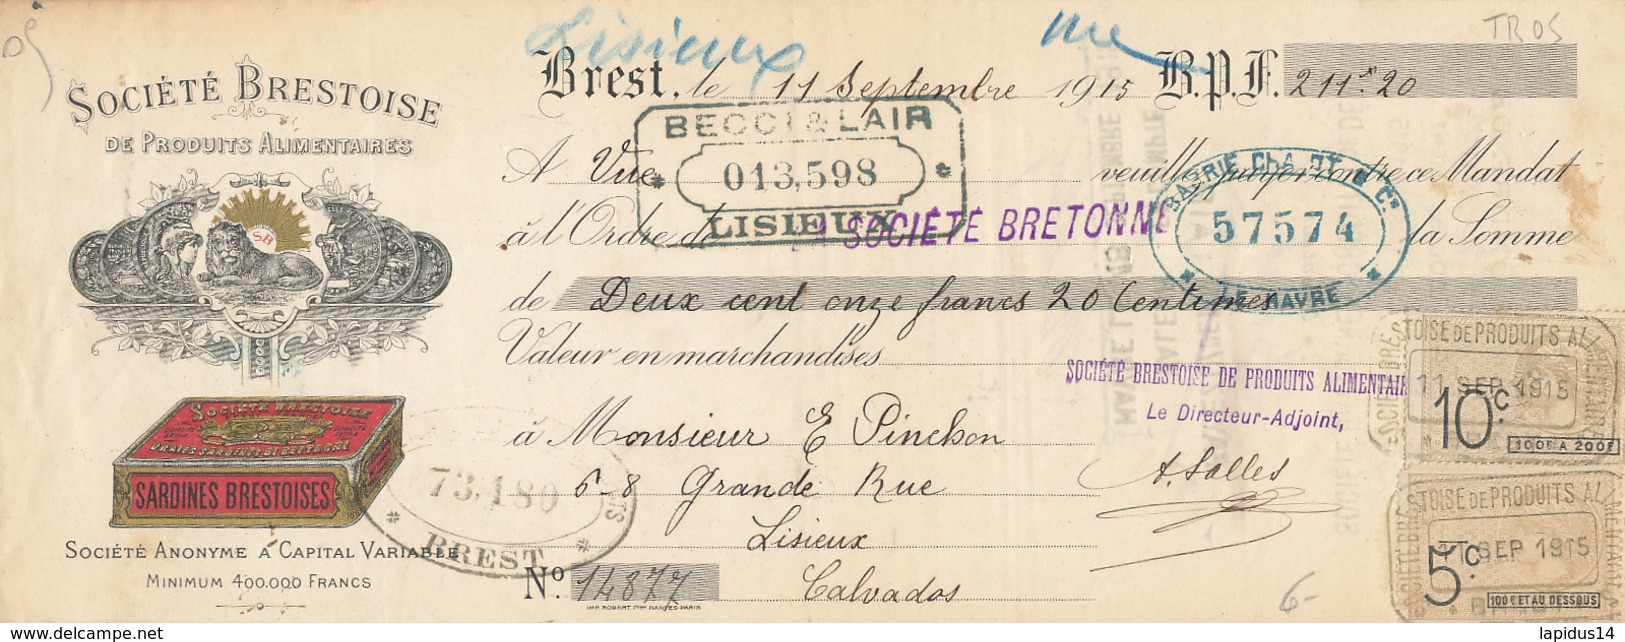 Lisieux
vue
TROS
SOCIÉTÉ BRESTOISE
DE PRODUITS ALIMENTAIRES
SB
SOCIÉTÉ BRESTOISE
VRAIES SARDINES DE BRETAGNE
SARDINES BRESTOISES
SOCIÉTÉ ANONYME A CAPITAL VARIABLE
MINIMUM 400.000 FRANCS
Brest, le 11 Septembre 1915 B.P.F. 211 f 20
BECCI & LAIR
013,598
LISIEUX
A Vue veuillez payer contre ce Mandat
à l'Ordre de LA SOCIÉTÉ BRETONNE la Somme
57574
LE HAVRE
de Deux cent onze francs 20 Centimes
Valeur en marchandises
SOCIÉTÉ BRESTOISE DE PRODUITS ALIMENTAIR
Le Directeur-Adjoint,
A. Salles
à Monsieur E Pinchon
6-8 Grande Rue
Lisieux
Calvados
73,180
BREST
No 14877
IMP. ROBERT Fres NANTES-PARIS
6-
STOISE DE PRODUITS AL
11 SEP 1915
10c
100F À 200F
STOISE DE PRODUITS AL
11 SEP 1915
5c
100F ET AU DESSOUS
lapidus14